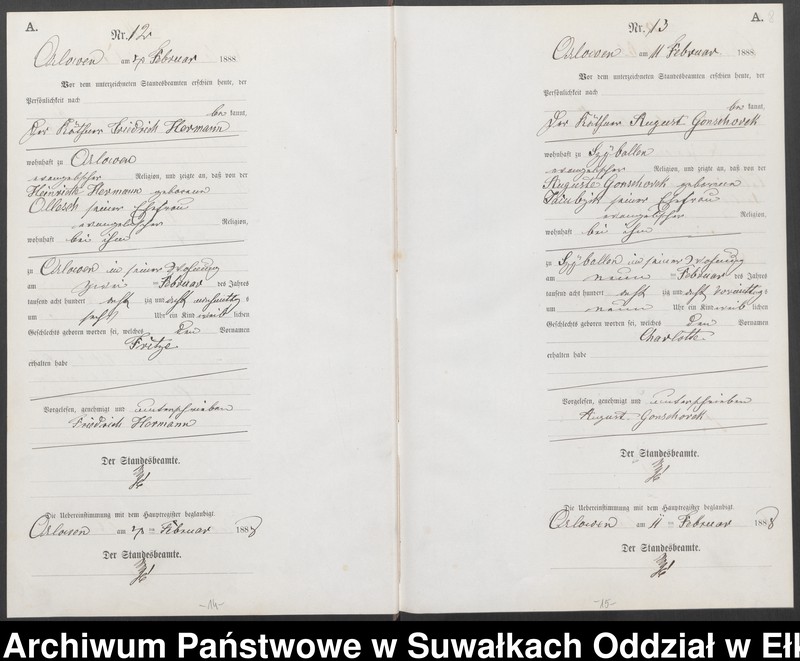 A.
Nr. 12
Arlowen am Februar 1888.
Vor dem unterzeichneten Standesbeamten erschien heute, der
Persönlichkeit nach
be kannt,
der Käthner Friedrich Hermann
wohnhaft zu Arlowen
evangelischer Religion, und zeigte an, daß von der
Heinriette Hermann geborenen
Ollesch seiner Ehefrau
evangelischer Religion,
wohnhaft bei ihm
zu Arlowen in seiner Wohnung
am zwei ten Februar des Jahres
tausend acht hundert acht zig und acht nachmittags
um sechs Uhr ein Kind weib lichen
Geschlechts geboren worden sei, welches den Vornamen
Fritze
erhalten habe
Vorgelesen, genehmigt und unterschrieben
Friedrich Hermann
Der Standesbeamte.
Die Uebereinstimmung mit dem Hauptregister beglaubigt
Arlowen am ten Februar 1888
Der Standesbeamte.
-14-
A.
8
Nr. 13
Arlowen am 11 Februar 1888.
Vor dem unterzeichneten Standesbeamten erschien heute, der
Persönlichkeit nach
be kannt,
der Käthner August Gonschorek
wohnhaft zu Szyballen
evangelischer Religion, und zeigte an, daß von der
Auguste Gonschorek geborenen
seiner Ehefrau
evangelischer Religion,
wohnhaft bei ihm
zu Szyballen in seiner Wohnung
am neun ten Februar des Jahres
tausend acht hundert acht zig und acht vormittags
um neun Uhr ein Kind weib lichen
Geschlechts geboren worden sei, welches den Vornamen
Charlotte
erhalten habe
Vorgelesen, genehmigt und unterschrieben
August Gonschorek
Der Standesbeamte.
Die Uebereinstimmung mit dem Hauptregister beglaubigt
Arlowen am 11 ten Februar 1888
Der Standesbeamte.
-15-
Archiwum Państwowe w Suwałkach Oddział w Ełk